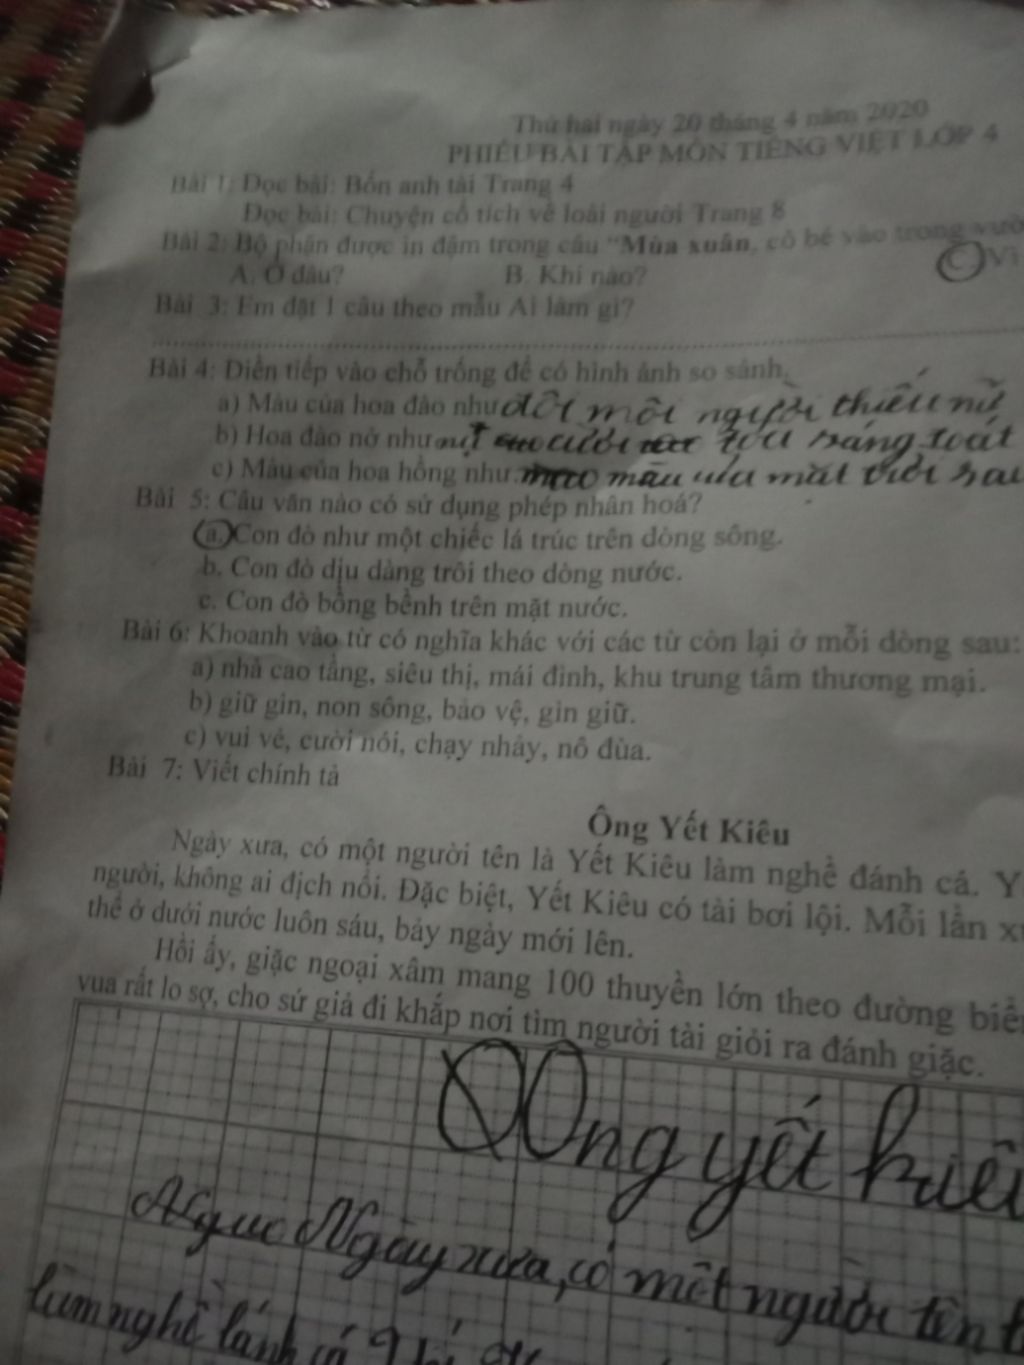 Thứ hai ngày 20 tháng 4 năm 2020
PHIẾU BÀI TẬP MÔN TIẾNG VIỆT LỚP 4
Bài 1: Đọc bài: Bốn anh tài Trang 4
Đọc bài: Chuyện cổ tích về loài người Trang 8
Bài 2: Bộ phận được in đậm trong câu "Mùa xuân, cô bé vào trong vườ
A. Ở đâu? B. Khi nào? C Vì
Bài 3: Em đặt 1 câu theo mẫu Ai làm gì?
Bài 4: Điền tiếp vào chỗ trống để có hình ảnh so sánh.
a) Màu của hoa đào như đôi môi người thiếu nữ
b) Hoa đào nở như nụ cười tỏa sáng
c) Màu của hoa hồng như màu của mặt trời
Bài 5: Câu văn nào có sử dụng phép nhân hoá?
a. Con đò như một chiếc lá trúc trên dòng sông.
b. Con đò dịu dàng trôi theo dòng nước.
c. Con đò bồng bềnh trên mặt nước.
Bài 6: Khoanh vào từ có nghĩa khác với các từ còn lại ở mỗi dòng sau:
a) nhà cao tầng, siêu thị, mái đình, khu trung tâm thương mại.
b) giữ gìn, non sông, bảo vệ, gìn giữ.
c) vui vẻ, cười nói, chạy nhảy, nô đùa.
Bài 7: Viết chính tả
Ông Yết Kiêu
Ngày xưa, có một người tên là Yết Kiêu làm nghề đánh cá. Y
người, không ai địch nổi. Đặc biệt, Yết Kiêu có tài bơi lội. Mỗi lần x
thể ở dưới nước luôn sáu, bảy ngày mới lên.
Hồi ấy, giặc ngoại xâm mang 100 thuyền lớn theo đường biể
vua rất lo sợ, cho sứ giả đi khắp nơi tìm người tài giỏi ra đánh giặc.
Ong yết kiê
Ngày xưa, có một người tên
làm nghề